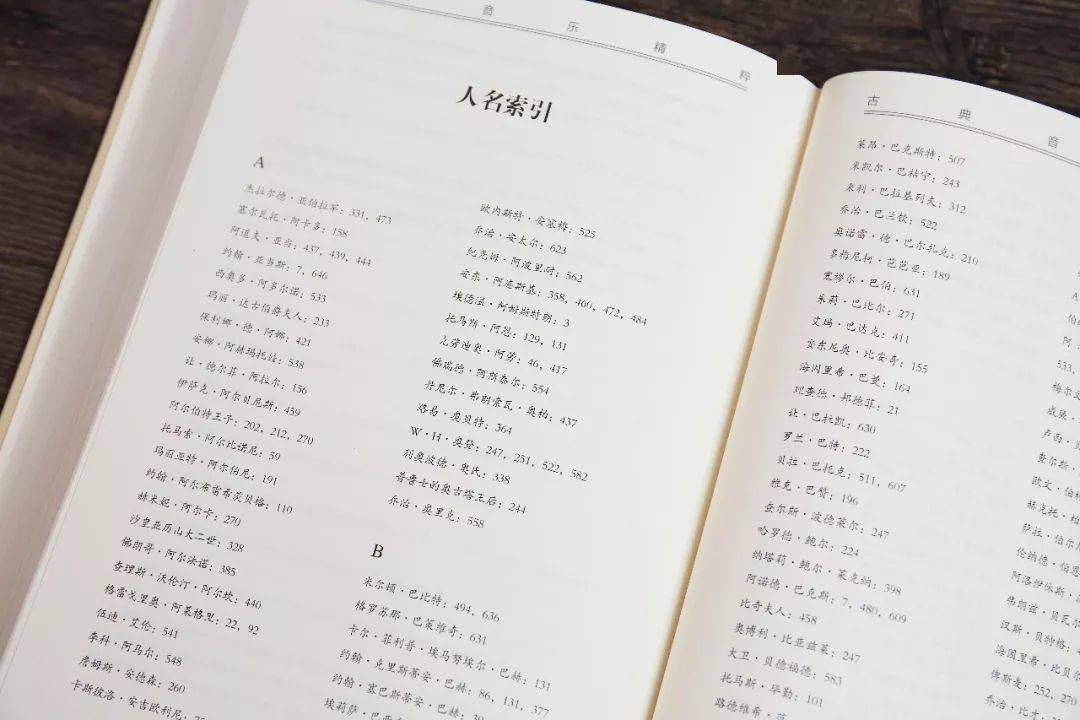 音乐精粹
人名索引
A
杰拉尔德·亚伯拉罕：331，473
塞尔瓦托·阿卡多：158
阿道夫·亚当：437，439，444
约翰·亚当斯：7，646
西奥多·阿多尔诺：533
玛丽·达古伯爵夫人：233
保利娜·德·阿娜：421
安娜·阿赫玛托娃：538
让·德尔菲·阿拉尔：156
伊萨克·阿尔贝尼斯：459
阿尔伯特王子：202，212，270
托马索·阿尔比诺尼：59
玛丽亚特·阿尔伯尼：191
约翰·阿尔布雷希茨贝格：110
赫米妮·阿尔卡：270
沙皇亚历山大二世：328
佛朗哥·阿尔法诺：385
查理斯·沃伦汀·阿尔坎：440
格雷戈里奥·阿莱格里：22，92
伍迪·艾伦：541
李科·阿马尔：548
詹姆斯·安德森：260
卡斯彼洛·安吉欧利尼：
欧内斯特·安塞梅：525
乔治·安太尔：623
纪尧姆·阿波里耐：562
安东·阿连斯基：358，460，472，484
埃德温·阿姆斯特朗：3
托马斯·阿恩：129，131
克劳迪奥·阿劳：46，417
佛瑞德·阿斯泰尔：554
丹尼尔·弗朗索瓦·奥柏：437
路易·奥贝特：364
W·H·奥登：247，251，522，582
利奥波德·奥氏：338
普鲁士的奥古塔王后：244
乔治·奥里克：558
B
米尔顿·巴比特：494，636
格罗苏那·巴策维奇：631
卡尔·菲利普·埃马努埃尔·巴赫：131
约翰·克里斯蒂安·巴赫：86，131，377
约翰·塞巴斯蒂安·巴赫：
埃莉萨·
古典音
莱昂·巴克斯特：507
米凯尔·巴枯宁：243
米利·巴拉基列夫：312
乔治·巴兰钦：522
奥诺雷·德·巴尔扎克：210
多梅尼柯·芭芭亚：189
塞缪尔·巴伯：631
朱莉·巴比尔：271
艾玛·巴达克：411
安东尼奥·比安奇：155
海因里希·巴蔓：164
理查德·邦德菲：21
让·巴拉凯：630
罗兰·巴特：222
贝拉·巴托克：511，607
雅克·巴赞：196
查尔斯·波德莱尔：247
哈罗德·鲍尔：224
纳塔莉·鲍尔·莱克纳：398
阿诺德·巴克斯：7，480，609
比奇夫人：458
奥博利·比亚兹莱：247
大卫·贝德福德：583
托马斯·毕勒：101
路德维希·
伯
阿·
533，
梅尔文
威廉·
卢西·
查尔斯·
欧文·伯林
赫克托·柏
萨拉·伯尔
伦纳德·伯恩
阿洛伊休斯·
弗朗兹·贝瓦尔
汉斯·贝特格：
海因里希·比贝尔
俾斯麦：252，270
乔治·比才